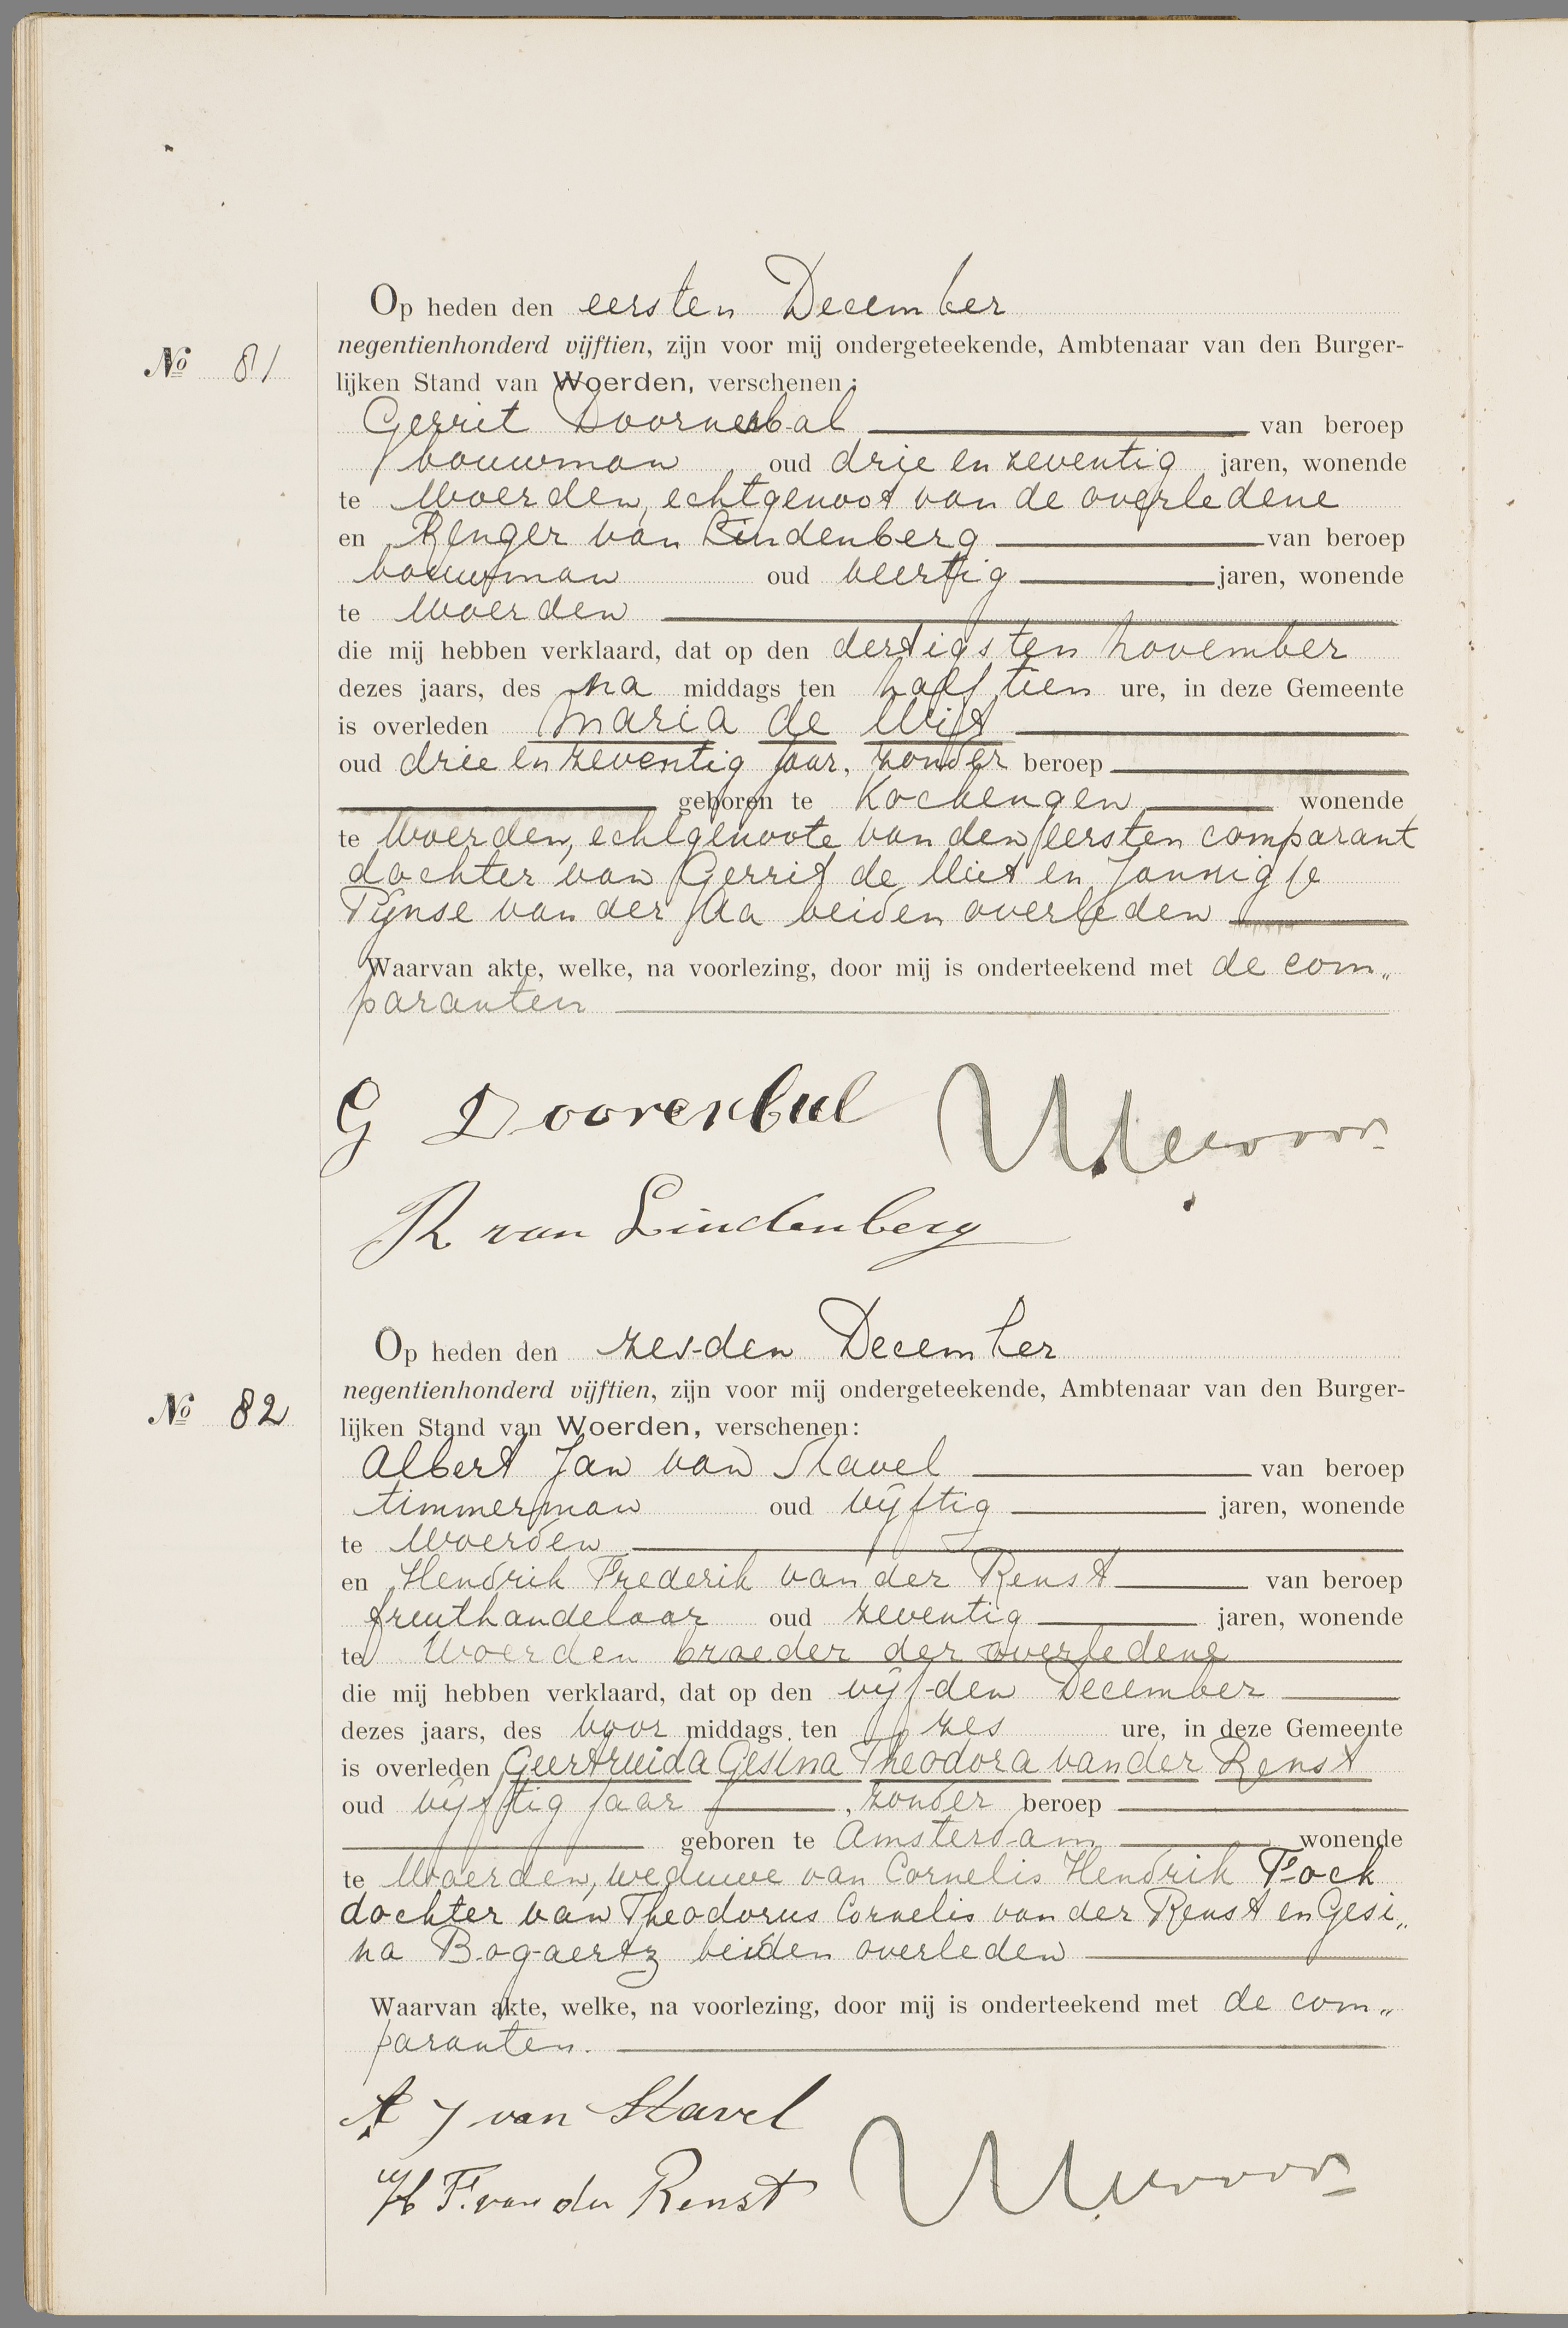 Op heden den eersten December
negentienhonderd vijftien, zijn voor mij ondergeteekende, Ambtenaar van den Burger-
No 81
lijken Stand van Woerden, verschenen:
Gerrit Doornenbal van beroep
bouwman oud drie en zeventig jaren, wonende
te Woerden, echtgenoot van de overledene
en Renger van Lindenberg van beroep
bouwman oud veertig jaren, wonende
te Woerden
die mij hebben verklaard, dat op den dertigsten November
dezes jaars, des na middags ten half tien ure, in deze Gemeente
is overleden Maria de Wit
oud drie en zeventig jaar, zonder beroep
geboren te Kockengen wonende
te Woerden, echtgenoote van den eersten comparant
dochter van Gerrit de Wit en Jannigje
Tijnse van der Aa beiden overleden
Waarvan akte, welke, na voorlezing, door mij is onderteekend met de com„
paranten
G Doorenbal
R van Lindenberg
Op heden den zes-den December
negentienhonderd vijftien, zijn voor mij ondergeteekende, Ambtenaar van den Burger-
No 82
lijken Stand van Woerden, verschenen:
Albert Jan van Stavel van beroep
timmerman oud vijftig jaren, wonende
te Woerden
en Hendrik Frederik van der Renst van beroep
fruithandelaar oud zeventig jaren, wonende
te Woerden broeder der overledene
die mij hebben verklaard, dat op den vijf-den December
dezes jaars, des voor middags ten zes ure, in deze Gemeente
is overleden Geertruida Gesina Theodora van der Renst
oud vijftig jaar, zonder beroep
geboren te Amsterdam wonende
te Woerden, weduwe van Cornelis Hendrik Fock
dochter van Theodorus Cornelis van der Renst en Gesi„
na Bogaertz beiden overleden
Waarvan akte, welke, na voorlezing, door mij is onderteekend met de com„
paranten.
A J van Stavel
H F. van der Renst